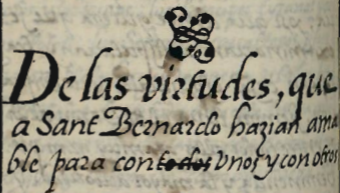 De las virtudes, que
a Sant Bernardo hazian ama
ble para con todos vnos y con otros